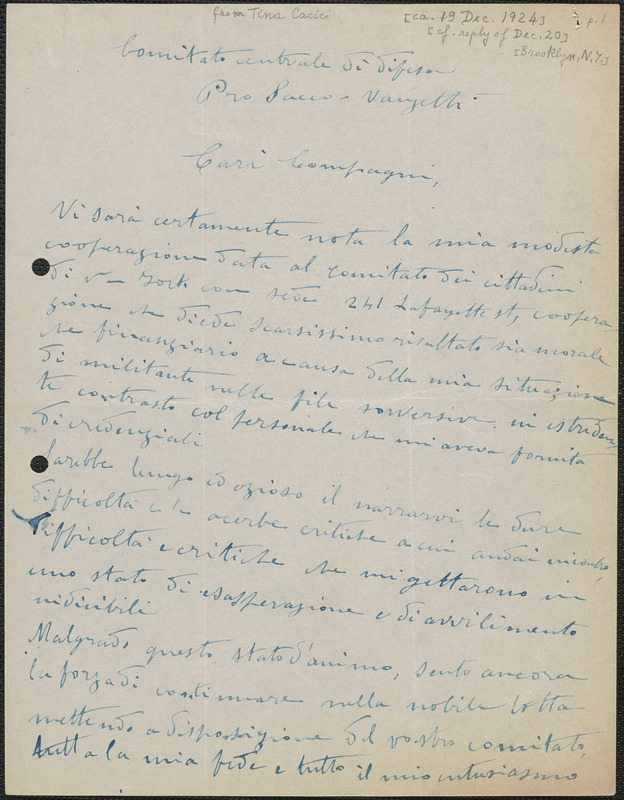 from Tina Cacici
[ca. 19 Dec. 1924]
p. 1
[cf. reply of Dec. 20]
[Brooklyn, N.Y.]
Comitato centrale di difesa
Pro Sacco-Vanzetti
Cari Compagni,
Vi sarà certamente nota la mia modesta
cooperazione data al comitato dei cittadini
di N- York con sede 241 Lafayette st, coopera
zione che diede scarsissimo risultato sia morale
che finanziario a causa della mia situazione
di militante nelle file sovversive, in istriden
te contrasto col personale che mi aveva fornita
di credenziali
Sarebbe lungo ed ozioso il narrarvi le dure
difficoltà e le acerbe critiche a cui andai incontro,
difficoltà e critiche che mi gettarono in
uno stato di esasperazione e di avvilimento
indicibili
Malgrado questo stato d'animo, sento ancora
la forza di continuare nella nobile lotta
mettendo a disposizione del vostro comitato,
tutta la mia fede e tutto il mio entusiasmo